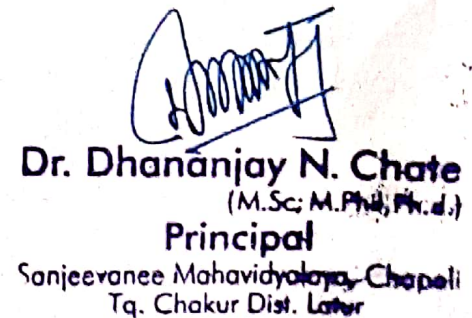 Dr. Dhananjay N. Chate
(M.Sc; M.Phil, Ph.d.)
Principal
Sanjeevanee Mahavidyalaya, Chapoli
Tq. Chakur Dist. Latur